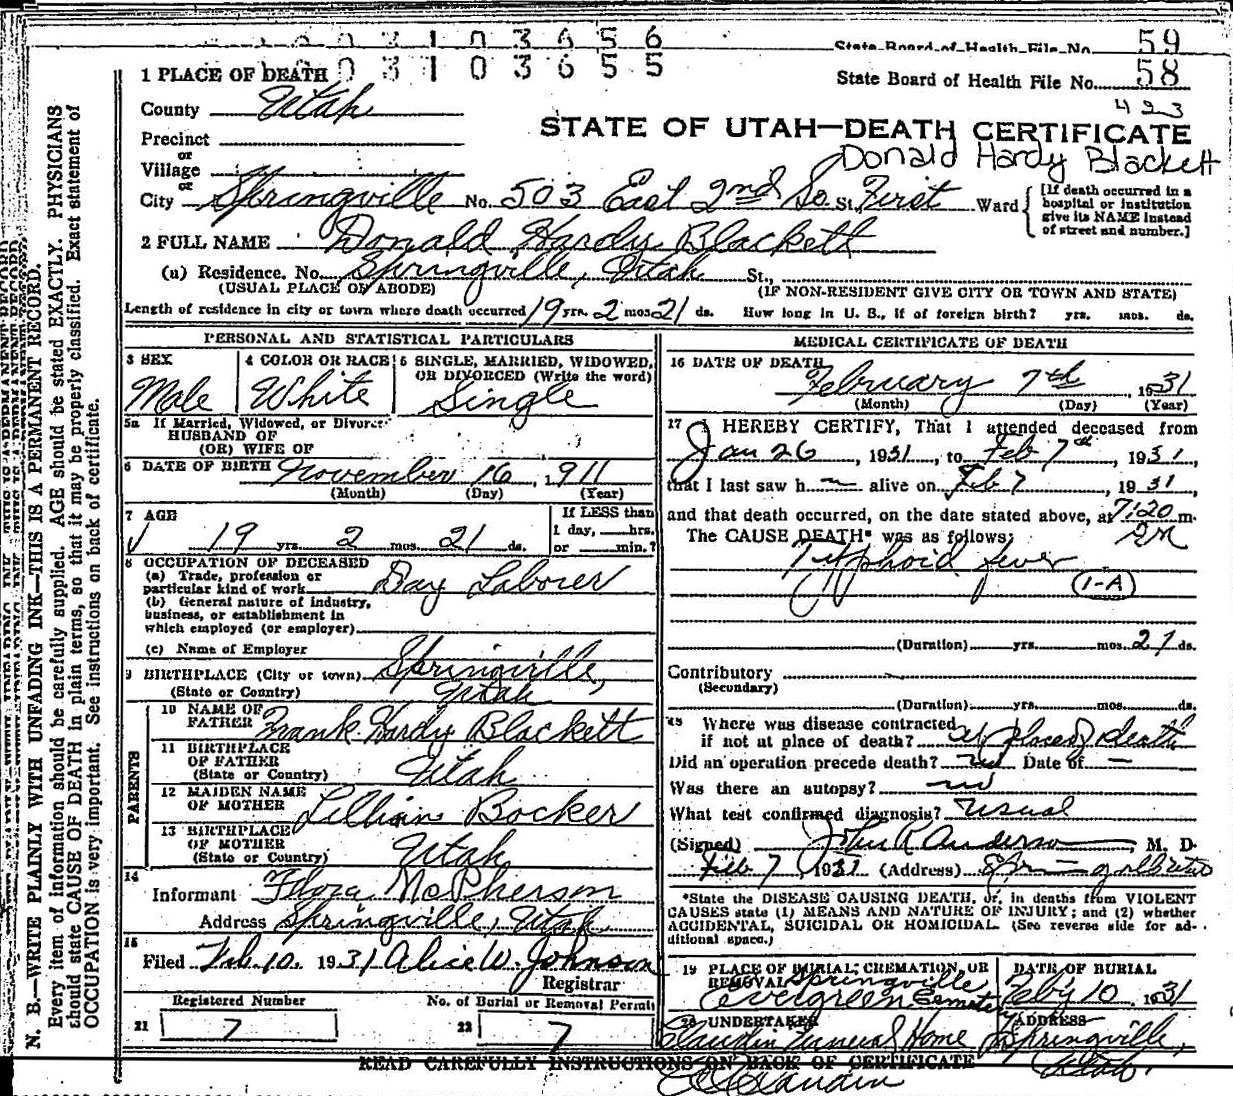 0 3 1 0 3 6 5 6
State Board of Health File No. 59
0 3 1 0 3 6 5 5
State Board of Health File No. 58
423
1 PLACE OF DEATH
County Utah
STATE OF UTAH—DEATH CERTIFICATE
Precinct
or
Village
or
Donald Hardy Blackett
City Springville No. 503 East 2nd So. St. First Ward
[If death occurred in a
hospital or institution
give its NAME instead
of street and number.]
2 FULL NAME Donald Hardy Blackett
(a) Residence. No. Springville, Utah St.,
(USUAL PLACE OF ABODE) (IF NON-RESIDENT GIVE CITY OR TOWN AND STATE)
Length of residence in city or town where death occurred 19 yrs. 2 mos. 21 ds. How long in U. S., if of foreign birth? yrs. mos. ds.
PERSONAL AND STATISTICAL PARTICULARS
3 SEX
Male
4 COLOR OR RACE
White
5 SINGLE, MARRIED, WIDOWED,
OR DIVORCED (Write the word)
Single
5a If Married, Widowed, or Divorced
HUSBAND OF
(OR) WIFE OF
6 DATE OF BIRTH November 16, 1911
(Month) (Day) (Year)
7 AGE
19 yrs. 2 mos. 21 ds.
If LESS than
1 day, hrs.
or min.?
8 OCCUPATION OF DECEASED
(a) Trade, profession or
particular kind of work Day Laborer
(b) General nature of industry,
business, or establishment in
which employed (or employer)
(c) Name of Employer
9 BIRTHPLACE (City or town) Springville,
(State or Country) Utah
PARENTS
10 NAME OF
FATHER Frank Hardy Blackett
11 BIRTHPLACE
OF FATHER
(State or Country) Utah
12 MAIDEN NAME
OF MOTHER Lillian Bocker
13 BIRTHPLACE
OF MOTHER
(State or Country) Utah
14
Informant Flora McPherson
Address Springville, Utah
15
Filed Feb. 10. 1931 Alice W. Johnson
Registrar
Registered Number
21 7
No. of Burial or Removal Permit
22 7
MEDICAL CERTIFICATE OF DEATH
16 DATE OF DEATH
February 7th 1931
(Month) (Day) (Year)
17 I HEREBY CERTIFY, That I attended deceased from
Jan 26, 1931, to Feb 7th, 1931,
that I last saw h alive on Feb 7, 1931,
and that death occurred, on the date stated above, at 7:20 m.
The CAUSE DEATH* was as follows:
Typhoid fever
(1-A)
(Duration) yrs. mos. 21 ds.
Contributory
(Secondary)
(Duration) yrs. mos. ds.
18 Where was disease contracted
if not at place of death? at place of death
Did an operation precede death? no Date of —
Was there an autopsy? no
What test confirmed diagnosis? Usual
(Signed) John R Anderson M. D.
Feb 7, 1931 (Address)
*State the DISEASE CAUSING DEATH, or, in deaths from VIOLENT
CAUSES state (1) MEANS AND NATURE OF INJURY; and (2) whether
ACCIDENTAL, SUICIDAL OR HOMICIDAL. (See reverse side for ad-
ditional space.)
19 PLACE OF BURIAL, CREMATION, OR
REMOVAL Springville
Evergreen Cemetery
DATE OF BURIAL
Feb'y 10 1931
20 UNDERTAKER
Claudin Funeral Home
ADDRESS
Springville,
Utah.
READ CAREFULLY INSTRUCTIONS ON BACK OF CERTIFICATE
Claudin
N. B.—WRITE PLAINLY WITH UNFADING INK—THIS IS A PERMANENT RECORD.
Every item of information should be carefully supplied. AGE should be stated EXACTLY. PHYSICIANS
should state CAUSE OF DEATH in plain terms, so that it may be properly classified. Exact statement of
OCCUPATION is very important. See instructions on back of certificate.